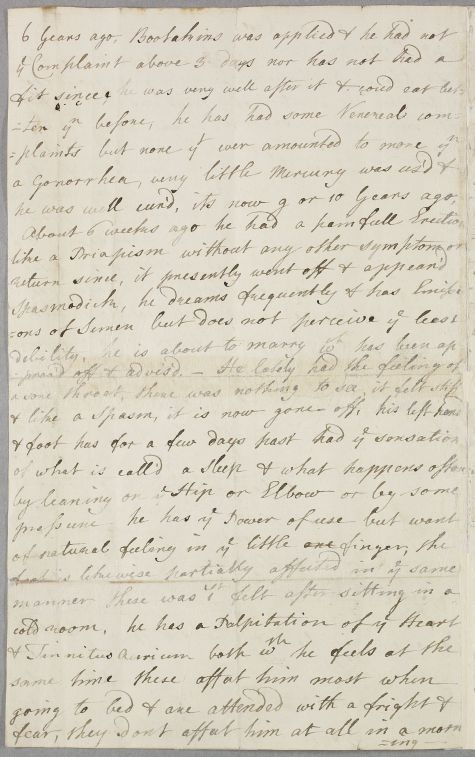 6 Years ago, Bootakins was applied & he had not
ye Complaint above 3 days nor has not had a
fit since, he was very well after it & could eat bet-
=ter yn before, he has had some Venereal com-
=plaints but none yt ever amounted to more yn
a Gonorrhea, very little Mercury was us'd &
he was well cur'd, its now 9 or 10 Years ago,
About 6 weeks ago he had a painfull Erection
like a Priapism without any other symptom or
return since, it presently went off & appear'd
Spasmodick, he dreams frequently & has Emissi-
-ons of Semen but does not perceive ye least
debility, he is about to marry wch has been ap
-prov'd off & advis'd. — He lately had the feeling of
a sore throat, there was nothing to see, it felt stiff
& like a Spasm, it is now gone off, his left hand
& foot has for a few days past had ye sensation
of what is call'd a Sleep & what happens often
by leaning on ye Hip or Elbow or by some
pressure he has ye Power of use but want
of natural feeling in ye little one finger, the
foot is likewise partially affected in ye same
manner these was 1st felt after sitting in a
cold room, he has a Palpitation of ye Heart
& Tinnitus aurium both wch he feels at the
same time these affect him most when
going to bed & are attended with a fright &
fear, they Dont affect him at all in a morn
=ing